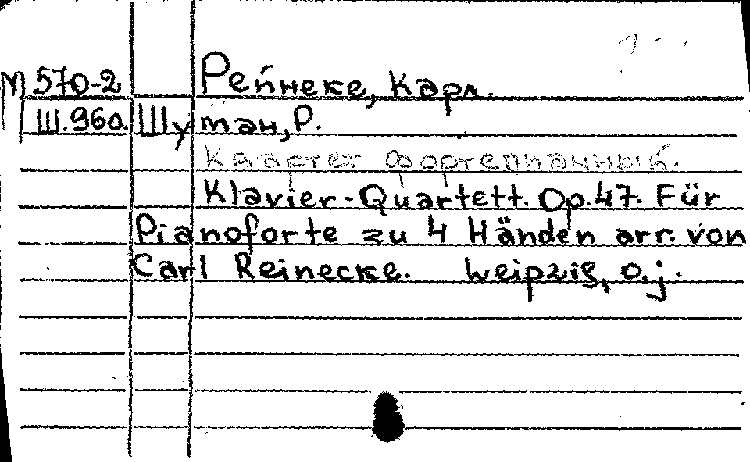 М 570-2 Рейнеке, Карл.
Ш.960. Шуман, Р.
Квартет фортепианный.
Klavier-Quartett. Op.47. Für
Pianoforte zu 4 Händen arr. von
Carl Reinecke. Leipzig, o.j.